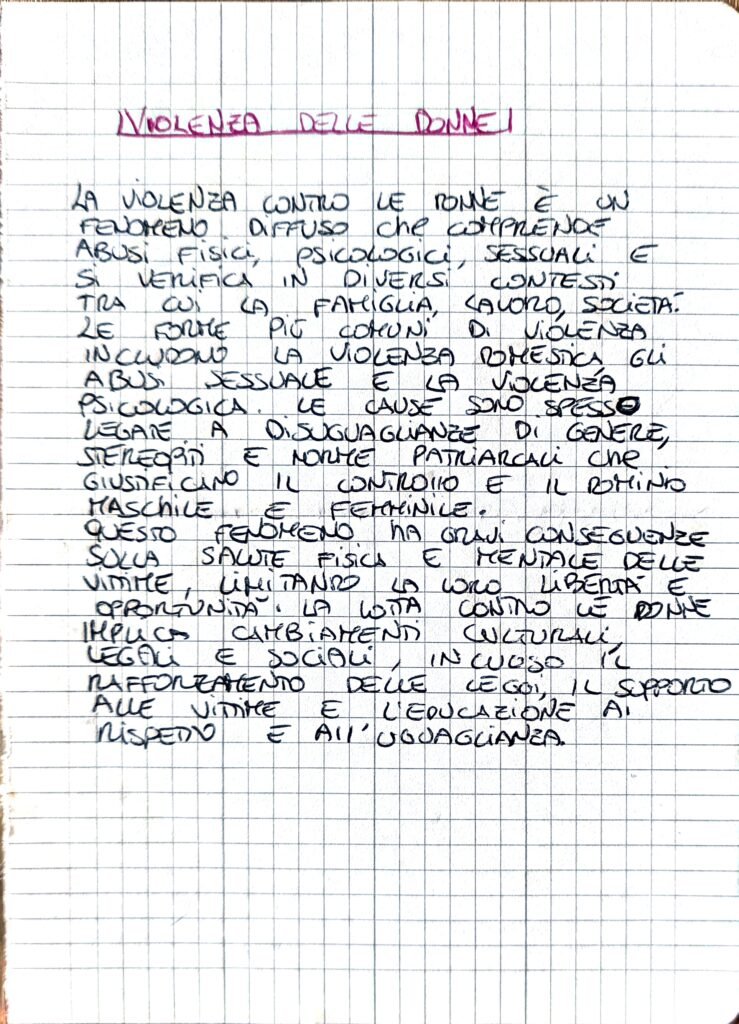 VIOLENZA DELLE DONNE
LA VIOLENZA CONTRO LE DONNE È UN
FENOMENO DIFFUSO che COMPRENDE
ABUSI FISICI, PSICOLOGICI, SESSUALI E
SI VERIFICA IN DIVERSI CONTESTI
TRA CUI LA FAMIGLIA, LAVORO, SOCIETÀ.
LE FORME PIÙ COMUNI DI VIOLENZA
INCLUDONO LA VIOLENZA DOMESTICA, GLI
ABUSI SESSUALE E LA VIOLENZA
PSICOLOGICA. LE CAUSE SONO SPESSO
LEGATE A DISUGUAGLIANZE DI GENERE,
STEREOTIPI E NORME PATRIARCALI CHE
GIUSTIFICANO IL CONTROLLO E IL DOMINIO
MASCHILE E FEMMINILE.
QUESTO FENOMENO HA GRAVI CONSEGUENZE
SULLA SALUTE FISICA E MENTALE DELLE
VITTIME, LIMITANDO LA LORO LIBERTÀ E
OPPORTUNITÀ. LA LOTTA CONTRO LE DONNE
IMPLICA CAMBIAMENTI CULTURALI,
LEGALI E SOCIALI, INCLUSO IL
RAFFORZAMENTO DELLE LEGGI, IL SUPPORTO
ALLE VITTIME E L'EDUCAZIONE AL
RISPETTO E All'UGUAGLIANZA.